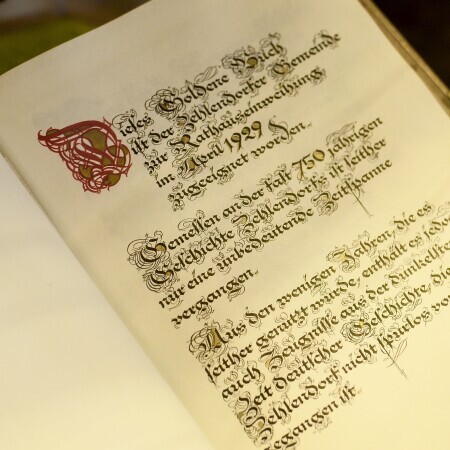 Dieses Goldene Buch
ist der Zehlendorfer Gemeinde
zur Rathauseinweihung
im April 1929
zugeeignet worden.
Gemessen an der fast 750 jährigen
Geschichte Zehlendorfs ist seither
nur eine unbedeutende Zeitspanne
vergangen.
Aus den wenigen Jahren, die es
seither genutzt wurde, enthält es jedoc
auch Zeugnisse aus der dunkelsten
Zeit deutscher Geschichte, die
Zehlendorf nicht spurlos vo
gegangen ist.